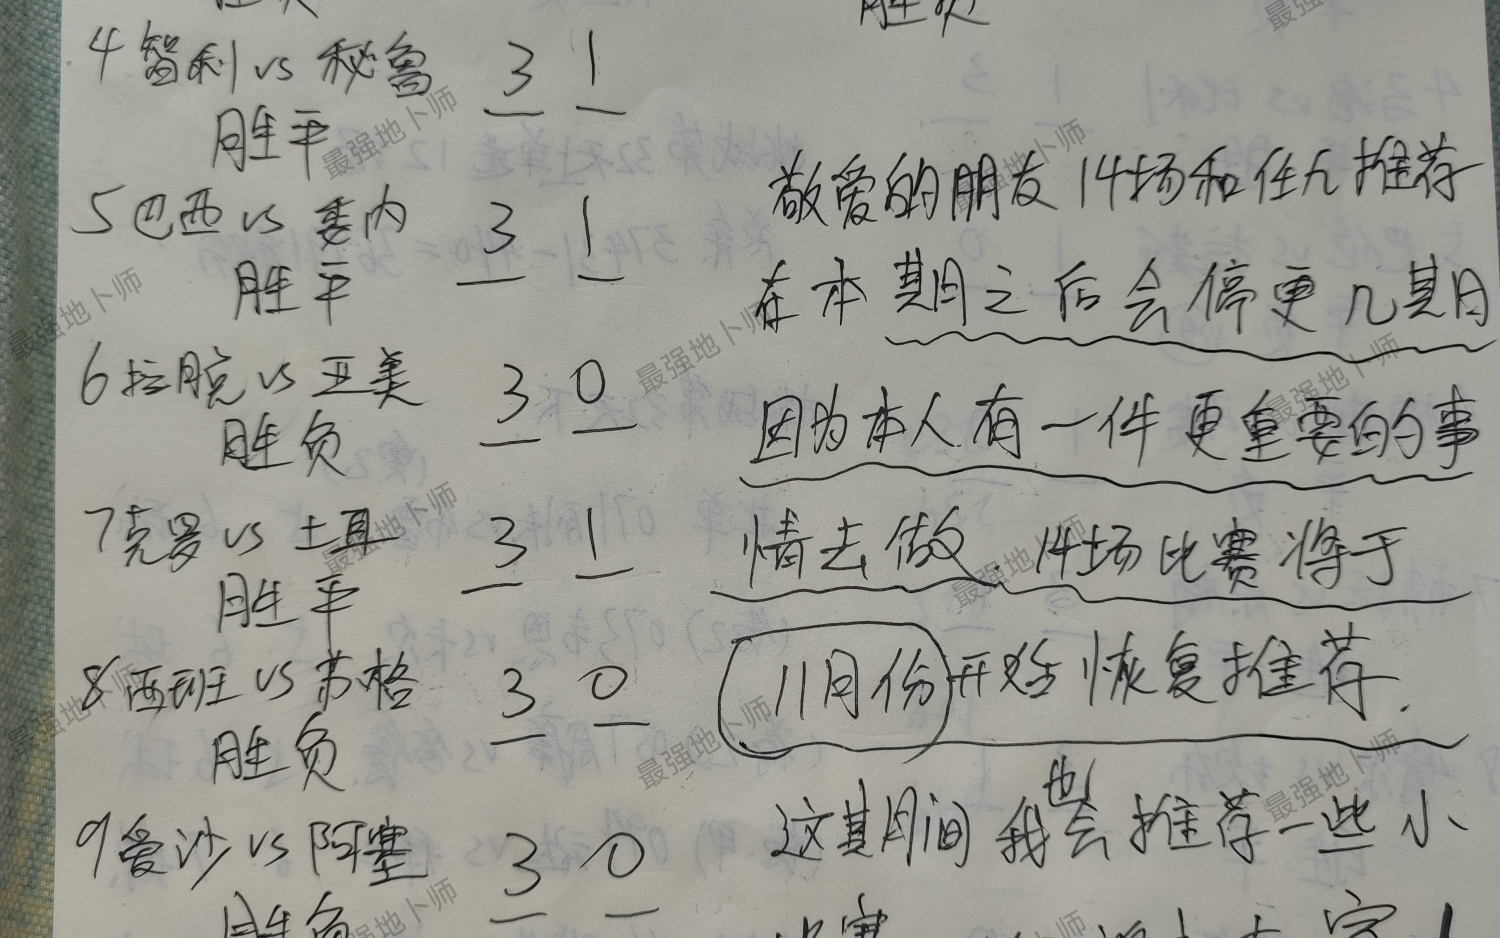 胜负
4 智利 vs 秘鲁 3 1
胜平
5 巴西 vs 委内 3 1
胜平
6 拉脱 vs 亚美 3 0
胜负
7 克罗 vs 土耳 3 1
胜平
8 西班 vs 苏格 3 0
胜负
9 爱沙 vs 阿塞 3 0
胜负
胜负
敬爱的朋友14场和任九推荐
在本期之后会停更几期
因为本人有一件更重要的事
情去做.14场比赛将于
11月份开始恢复推荐.
这期间我也会推荐一些小
最强地卜师